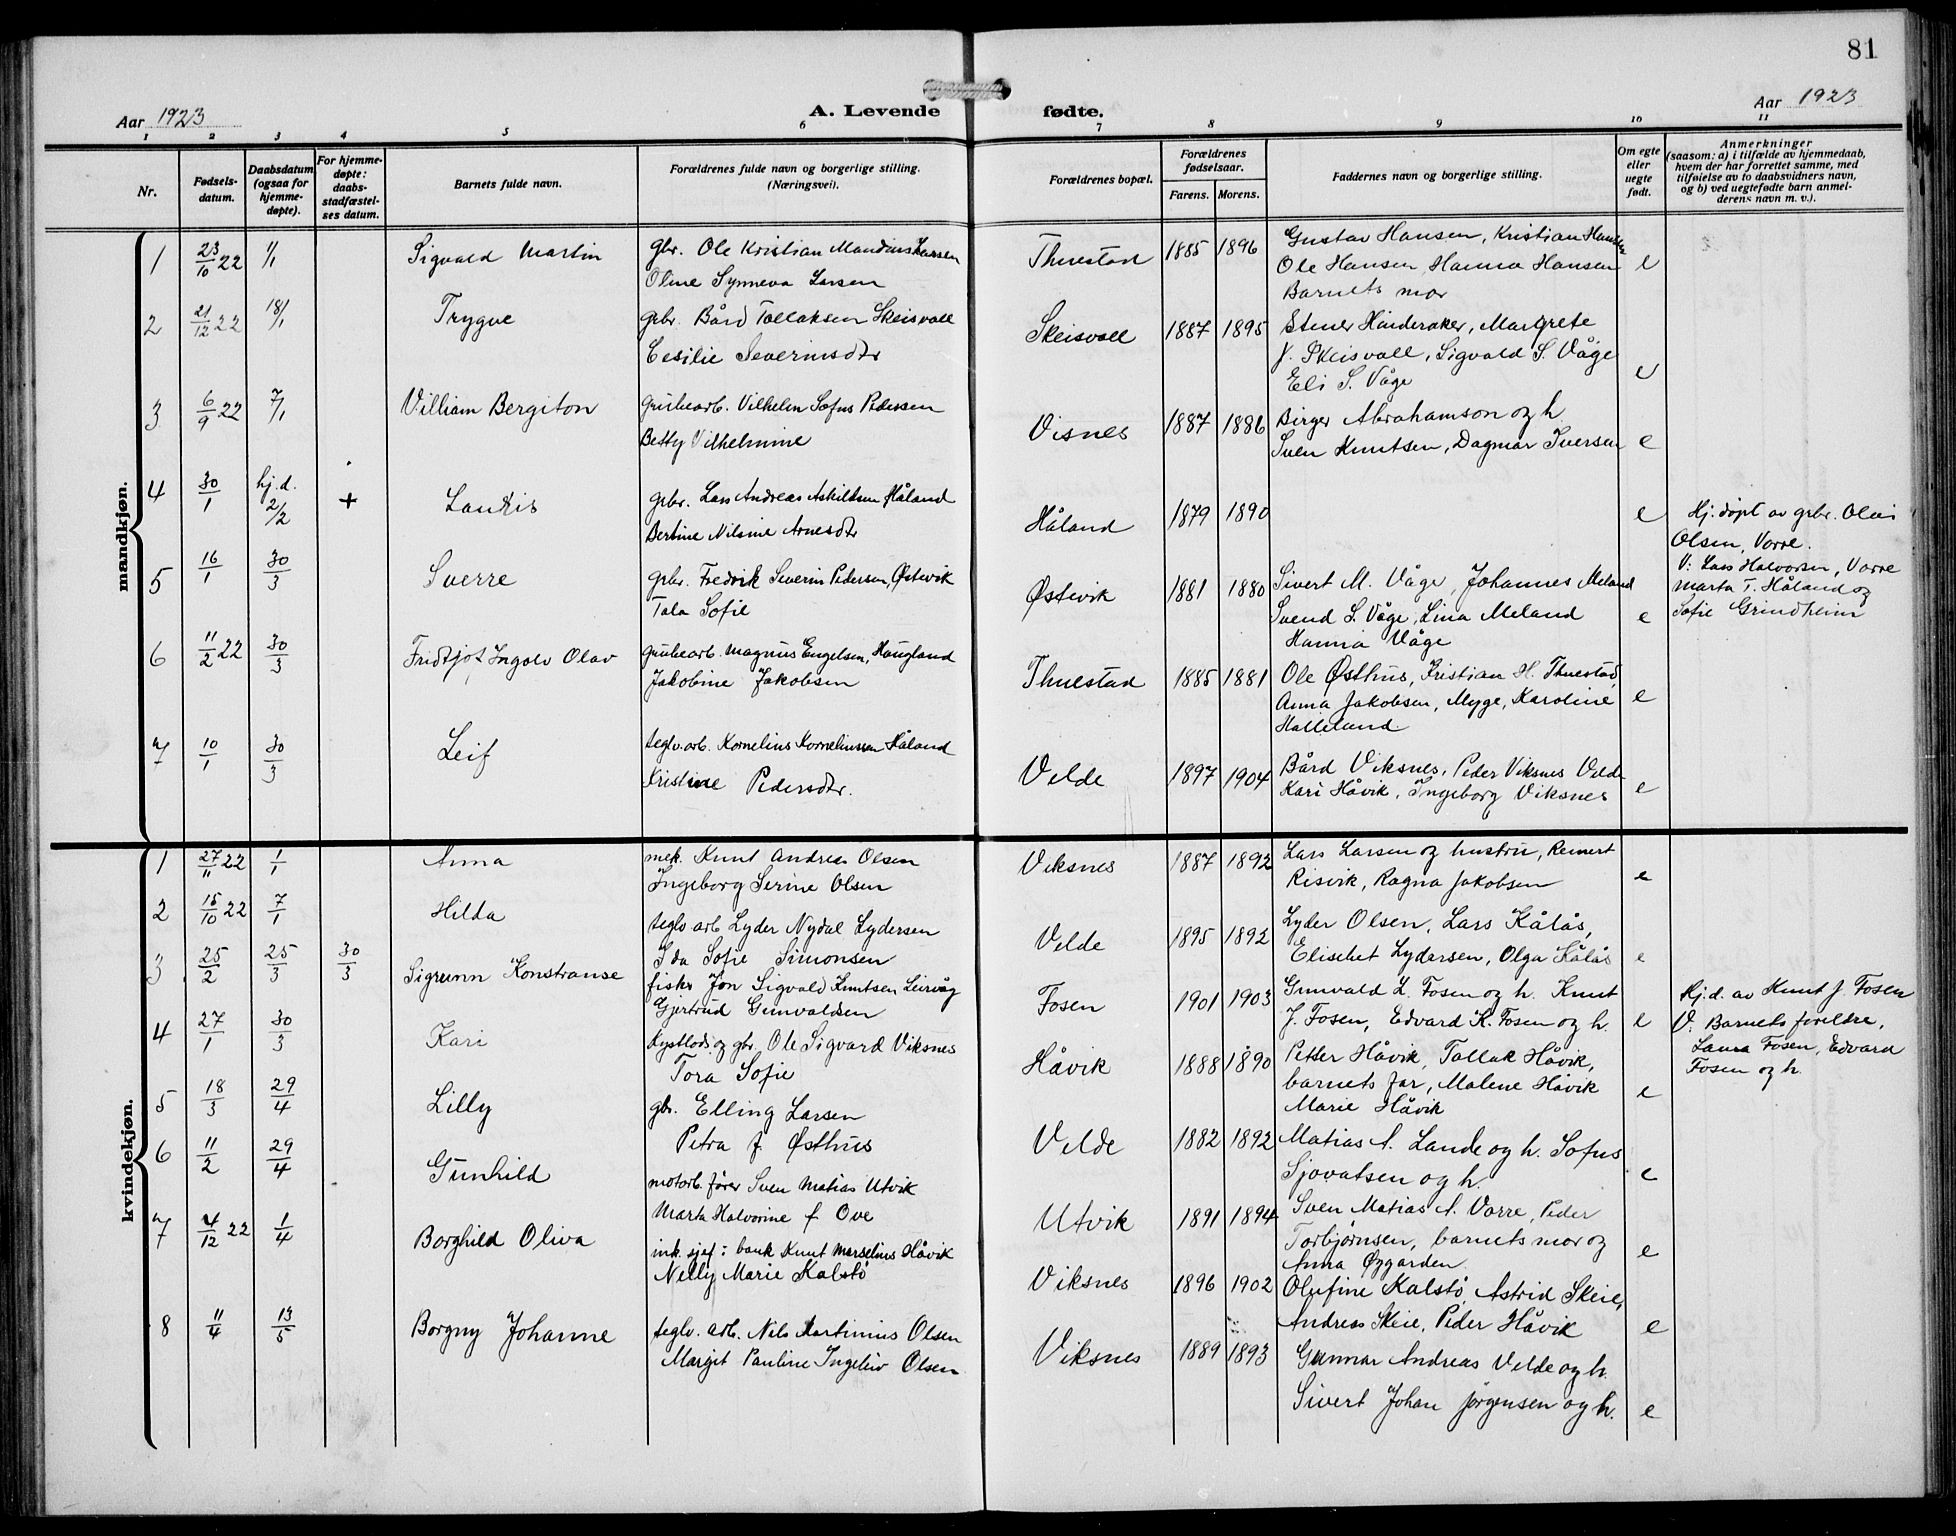 81
Aar 1923 A. Levende fødte. Aar 1923
1 2 3 4 5 6 7 8 9 10 11
Nr.
Fødsels-
datum.
Daabsdatum
(ogsaa for
hjemme-
døpte).
For hjemme-
døpte:
daabs-
stadfæstel-
ses datum.
Barnets fulde navn.
Forældrenes fulde navn og borgerlige stilling.
(Næringsvei).
Forældrenes bopæl.
Forældrenes
fødselsaar.
Farens. Morens.
Faddernes navn og borgerlige stilling.
Om egte
eller
uegte
født.
Anmerkninger
(saasom: a) i tilfælde av hjemmedaab,
hvem der har forrettet samme, med
tilføielse av to daabsvidners navn,
og b) ved uegtefødte barn anmel-
derens navn m. v.).
mandkjøn.
1 23/10 22 1/1 Sigvald Martin gbr. Ole Kristian Mandius Larsen Thuestad 1885 1896 Gustav Hansen, Kristian Hansen e
Oline Synneva Larsen Ole Hansen, Hanna Hansen
Barnets mor
2 21/12 22 18/1 Trygve gbr. Bård Tollaksen Skeisvoll Skeisvoll 1887 1895 Stener Hinderaker, Margrete e
Cesilie Severinsdtr J. Skeisvoll, Sigvald S. Våge
Eli S. Våge
3 6/9 22 7/1 Villiam Bergiton Grubearb. Vilhelm Sofus Pedersen Visnes 1887 1886 Birger Abrahamson og h e
Betty Vilhelmine Sven Knutsen, Dagmar Iversen
4 30/1 hj.d. 2/2 + Lauris gbr. Lars Andreas Askildsen Håland Håland 1879 1890 e Hj. døpt av gbr. Olai
Bertine Nilsine Arnesdtr Olsen, Vorre.
V: Lars Halvorsen, Vorre
Marta T. Håland og
Sofie Grindheim
5 16/1 30/3 Sverre gbr. Fredrik Severin Pedersen, Østevik Østevik 1881 1880 Sivert M. Våge, Johannes Meland e
Tala Sofie Svend S. Våge, Lina Meland
Hanna Våge
6 11/2 22 30/3 Fridtjof Ingolv Olav grubearb. Magnus Engelsen, Haugland Thuestad 1885 1881 Ole Østhus, Kristian H. Thuestad, e
Jakobine Jakobsen Anna Jakobsen, Myge, Karoline
Halleland
7 10/1 30/3 Leif teglv.arb. Kornelius Korneliussen Håland Velde 1897 1904 Bård Viksnes, Peder Viksnes Velde e
Kristine Pedersdtr. Kari Håvik, Ingeborg Viksnes
kvindekjøn.
1 27/11 22 1/1 Anna mek. Knut Andreas Olsen Viksnes 1887 1892 Lars Larsen og hustru, Reinert e
Ingeborg Serine Olsen Risvik, Ragna Jakobsen
2 15/10 22 7/1 Hilda teglv arb Lyder Nydal Lydersen Velde 1895 1892 Lyder Olsen, Lars Kålås, e
Ida Sofie Simonsen Elisebet Lydersen, Olga Kålås
3 25/2 25/3 30/3 Sigrunn Konstranse fisker Jon Sigvald Knutsen Leirvåg Fosen 1901 1903 Gunvald L. Fosen og h. Knut e Hj.d. av Knut J. Fosen
Gjertrud Gunvaldsen J. Fosen, Edvard K. Fosen og h. V. Barnets foreldre,
Laura Fosen, Edvard
Fosen og h.
4 27/1 30/3 Kari Kystlods og gbr. Ole Sigvard Viksnes Håvik 1888 1890 Petter Håvik, Tollak Håvik, e
Tora Sofie barnets far, Malene Håvik
Marie Håvik
5 18/3 29/4 Lilly gbr. Elling Larsen Velde 1882 1892 Matias A. Lande og h. Sofus e
Petra J. Østhus Sjovatsen og h.
6 11/2 29/4 Gunhild motorb. fører Sven Matias Utvik Utvik 1891 1894 Sven Matias A. Vorre, Peder e
Marta Halvorine f. Ove Torbjørnsen, barnets mor og
Anna Øygarden.
7 4/12 22 1/4 Borghild Oliva ink. sjef i bank Knut Marselius Håvik Viksnes 1896 1902 Olufine Kalstø, Astrid Skeie, e
Nelly Marie Kalstø Andreas Skeie, Peder Håvik
8 11/4 13/5 Borgny Johanne teglv. arb. Nils Martinius Olsen Viksnes 1889 1893 Gunnar Andreas Velde og h. e
Margit Pauline Ingeleiv Olsen Sivert Johan Jørgensen og h.